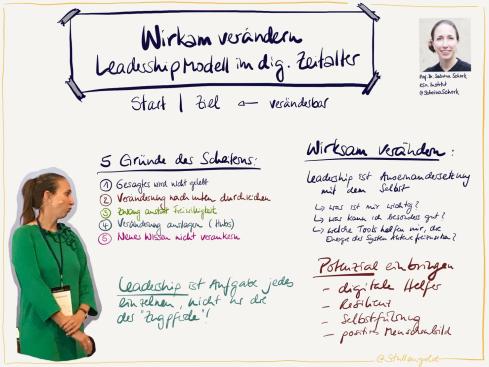 Wirksam verändern
Leadership Modell im dig. Zeitalter
Start | Ziel ← veränderbar
Prof. Dr. Sabina Schork
esn. Institut
@SabrinaSchork
5 Gründe des Scheiterns:
① Gesagtes wird nicht gelebt
② Veränderung nach unten durchreichen
③ Zwang anstatt Freiwilligkeit
④ Veränderung auslagern (Hubs)
⑤ Neues Wissen nicht verankern
Leadership ist Aufgabe jedes
einzelnen, nicht nur die
der "Zugpferde"!
Wirksam verändern:
Leadership ist Auseinandersetzung
mit dem Selbst
↳ was ist mir wichtig?
↳ was kann ich besonders gut?
↳ welche Tools helfen mir, die
Energie des System Akteure freizusetzen?
Potenzial einbringen
- digitale Helfer
- Resilienz
- Selbstführung
- positives Menschenbild